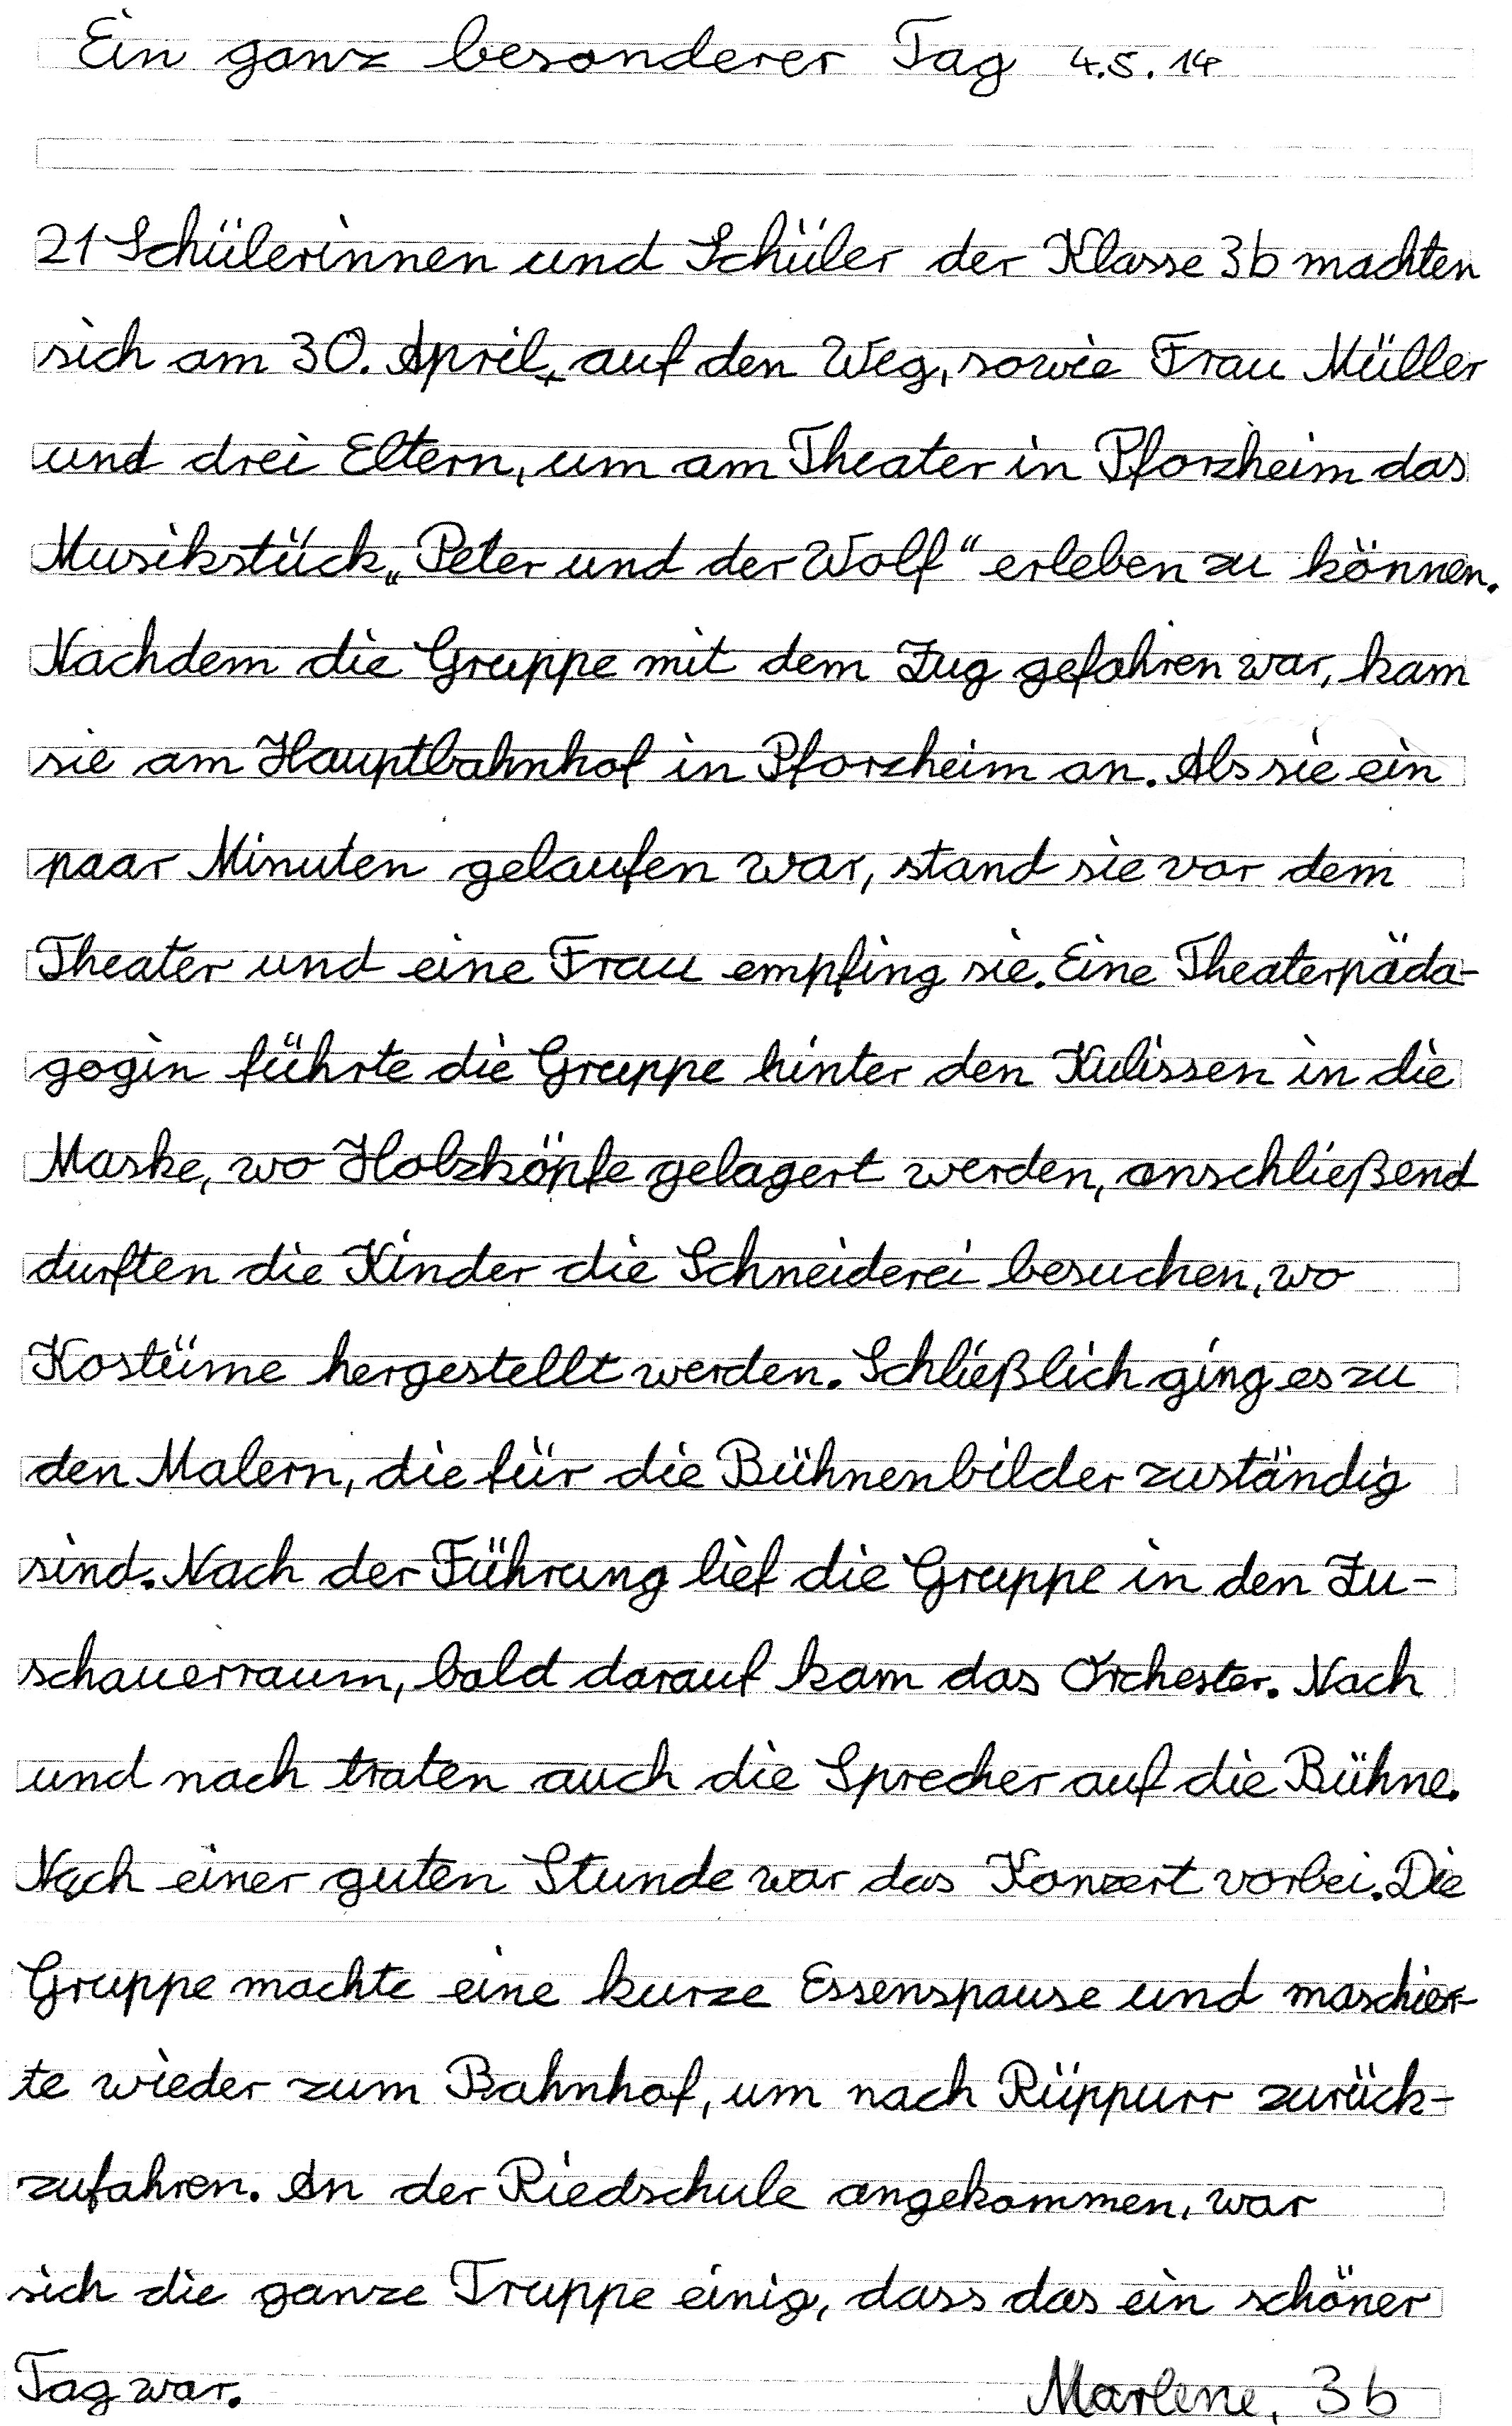 Ein ganz besonderer Tag 4.5.14
21 Schülerinnen und Schüler der Klasse 3b machten
sich am 30. April, auf den Weg, sowie Frau Müller
und drei Eltern, um am Theater in Pforzheim das
Musikstück „Peter und der Wolf“ erleben zu können.
Nachdem die Gruppe mit dem Zug gefahren war, kam
sie am Hauptbahnhof in Pforzheim an. Als sie ein
paar Minuten gelaufen war, stand sie vor dem
Theater und eine Frau empfing sie. Eine Theaterpäda-
gogin führte die Gruppe hinter den Kulissen in die
Maske, wo Holzköpfe gelagert werden, anschließend
durften die Kinder die Schneiderei besuchen, wo
Kostüme hergestellt werden. Schließlich ging es zu
den Malern, die für die Bühnenbilder zuständig
sind. Nach der Führung lief die Gruppe in den Zu-
schauerraum, bald darauf kam das Orchester. Nach
und nach traten auch die Sprecher auf die Bühne.
Nach einer guten Stunde war das Konzert vorbei. Die
Gruppe machte eine kurze Essenspause und maschier-
te wieder zum Bahnhof, um nach Rüppurr zurück-
zufahren. An der Riedschule angekommen, war
sich die ganze Truppe einig, dass das ein schöner
Tag war. Marlene, 3b